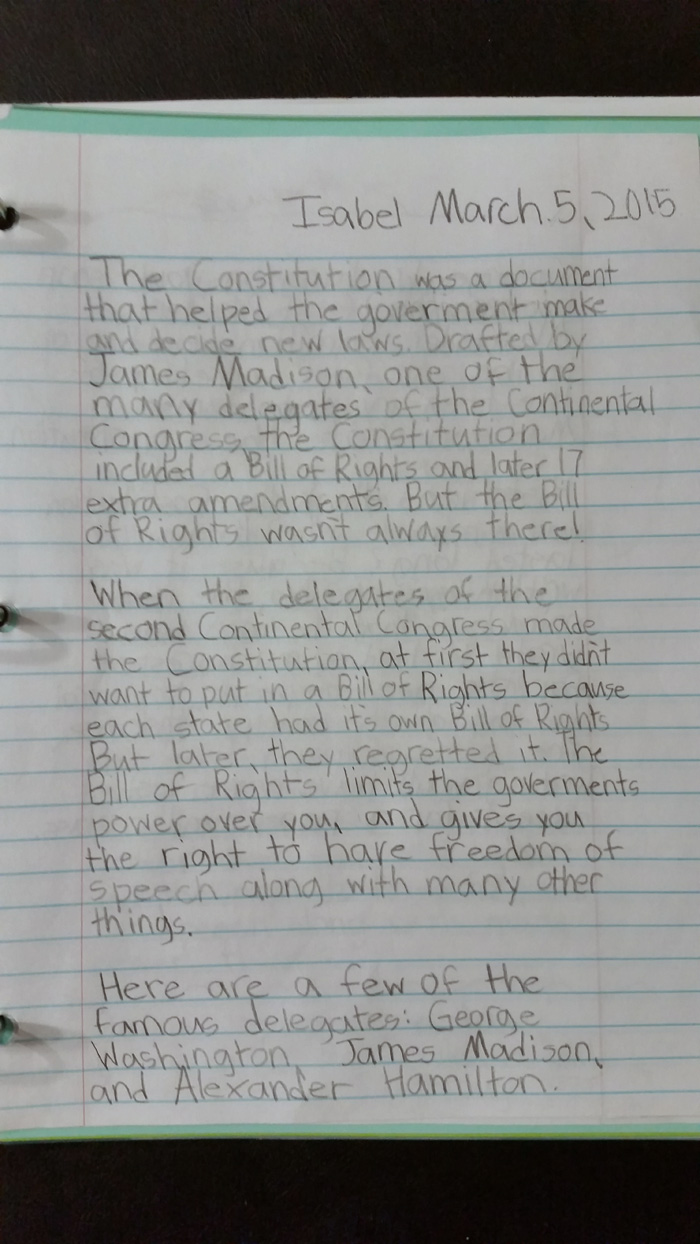 Isabel March.5, 2015
The Constitution was a document
that helped the goverment make
and decide new laws. Drafted by
James Madison, one of the
many delegates of the Continental
Congress, the Constitution
included a Bill of Rights and later 17
extra amendments. But the Bill
of Rights wasn't always there!
When the delegates of the
second Continental Congress made
the Constitution, at first they didn't
want to put in a Bill of Rights because
each state had it's own Bill of Rights
But later, they regretted it. The
Bill of Rights limits the goverments
power over you, and gives you
the right to have freedom of
speech along with many other
things.
Here are a few of the
famous delegates: George
Washington, James Madison,
and Alexander Hamilton.